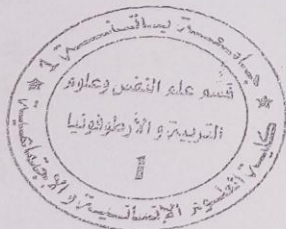 جامعة باتنة 1
قسم علم النفس وعلوم
التربية و الأرطوفونيا
1
كلية العلوم الإنسانية و الاجتماعية